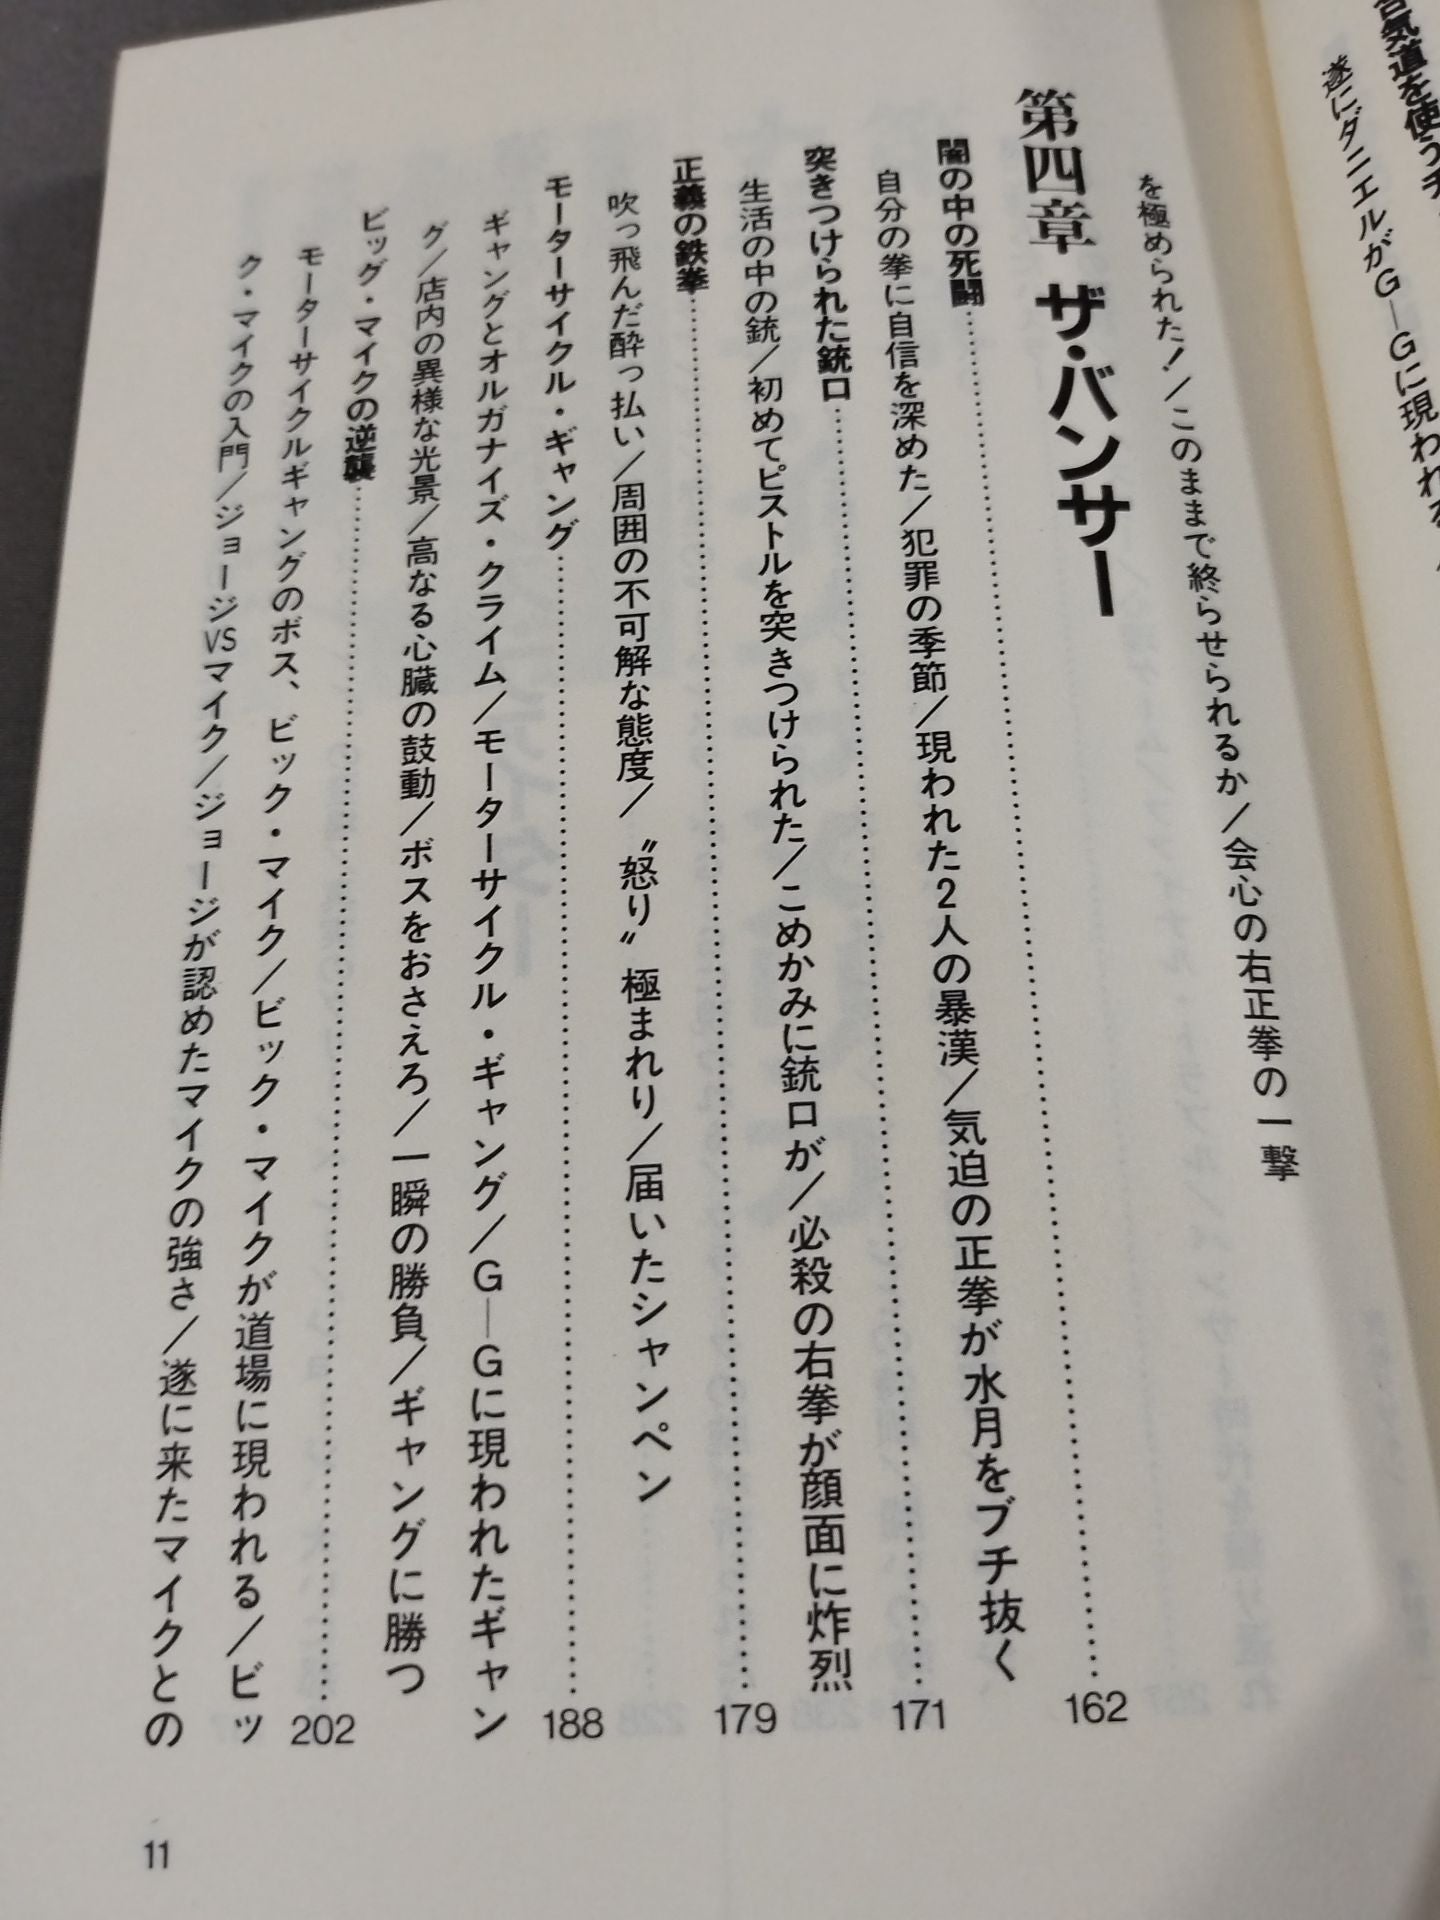 気道を使う
遂にダニエルがG—Gに現われる
を極められた！／このままで終らせられるか／会心の右正拳の一撃
第四章 ザ・バンサー
闇の中の死闘……162
自分の拳に自信を深めた／犯罪の季節／現われた2人の暴漢／気迫の正拳が水月をブチ抜く
突きつけられた銃口……171
生活の中の銃／初めてピストルを突きつけられた／こめかみに銃口が／必殺の右拳が顔面に炸烈
正義の鉄拳……179
吹っ飛んだ酔っ払い／周囲の不可解な態度／〝怒り〟極まれり／届いたシャンペン
モーターサイクル・ギャング……188
ギャングとオルガナイズ・クライム／モーターサイクル・ギャング／G—Gに現われたギャン
グ／店内の異様な光景／高なる心臓の鼓動／ボスをおさえろ／一瞬の勝負／ギャングに勝つ
ビッグ・マイクの逆襲……202
モーターサイクルギャングのボス、ビック・マイク／ビック・マイクが道場に現われる／ビッ
ク・マイクの入門／ジョージVSマイク／ジョージが認めたマイクの強さ／遂に来たマイクとの
11